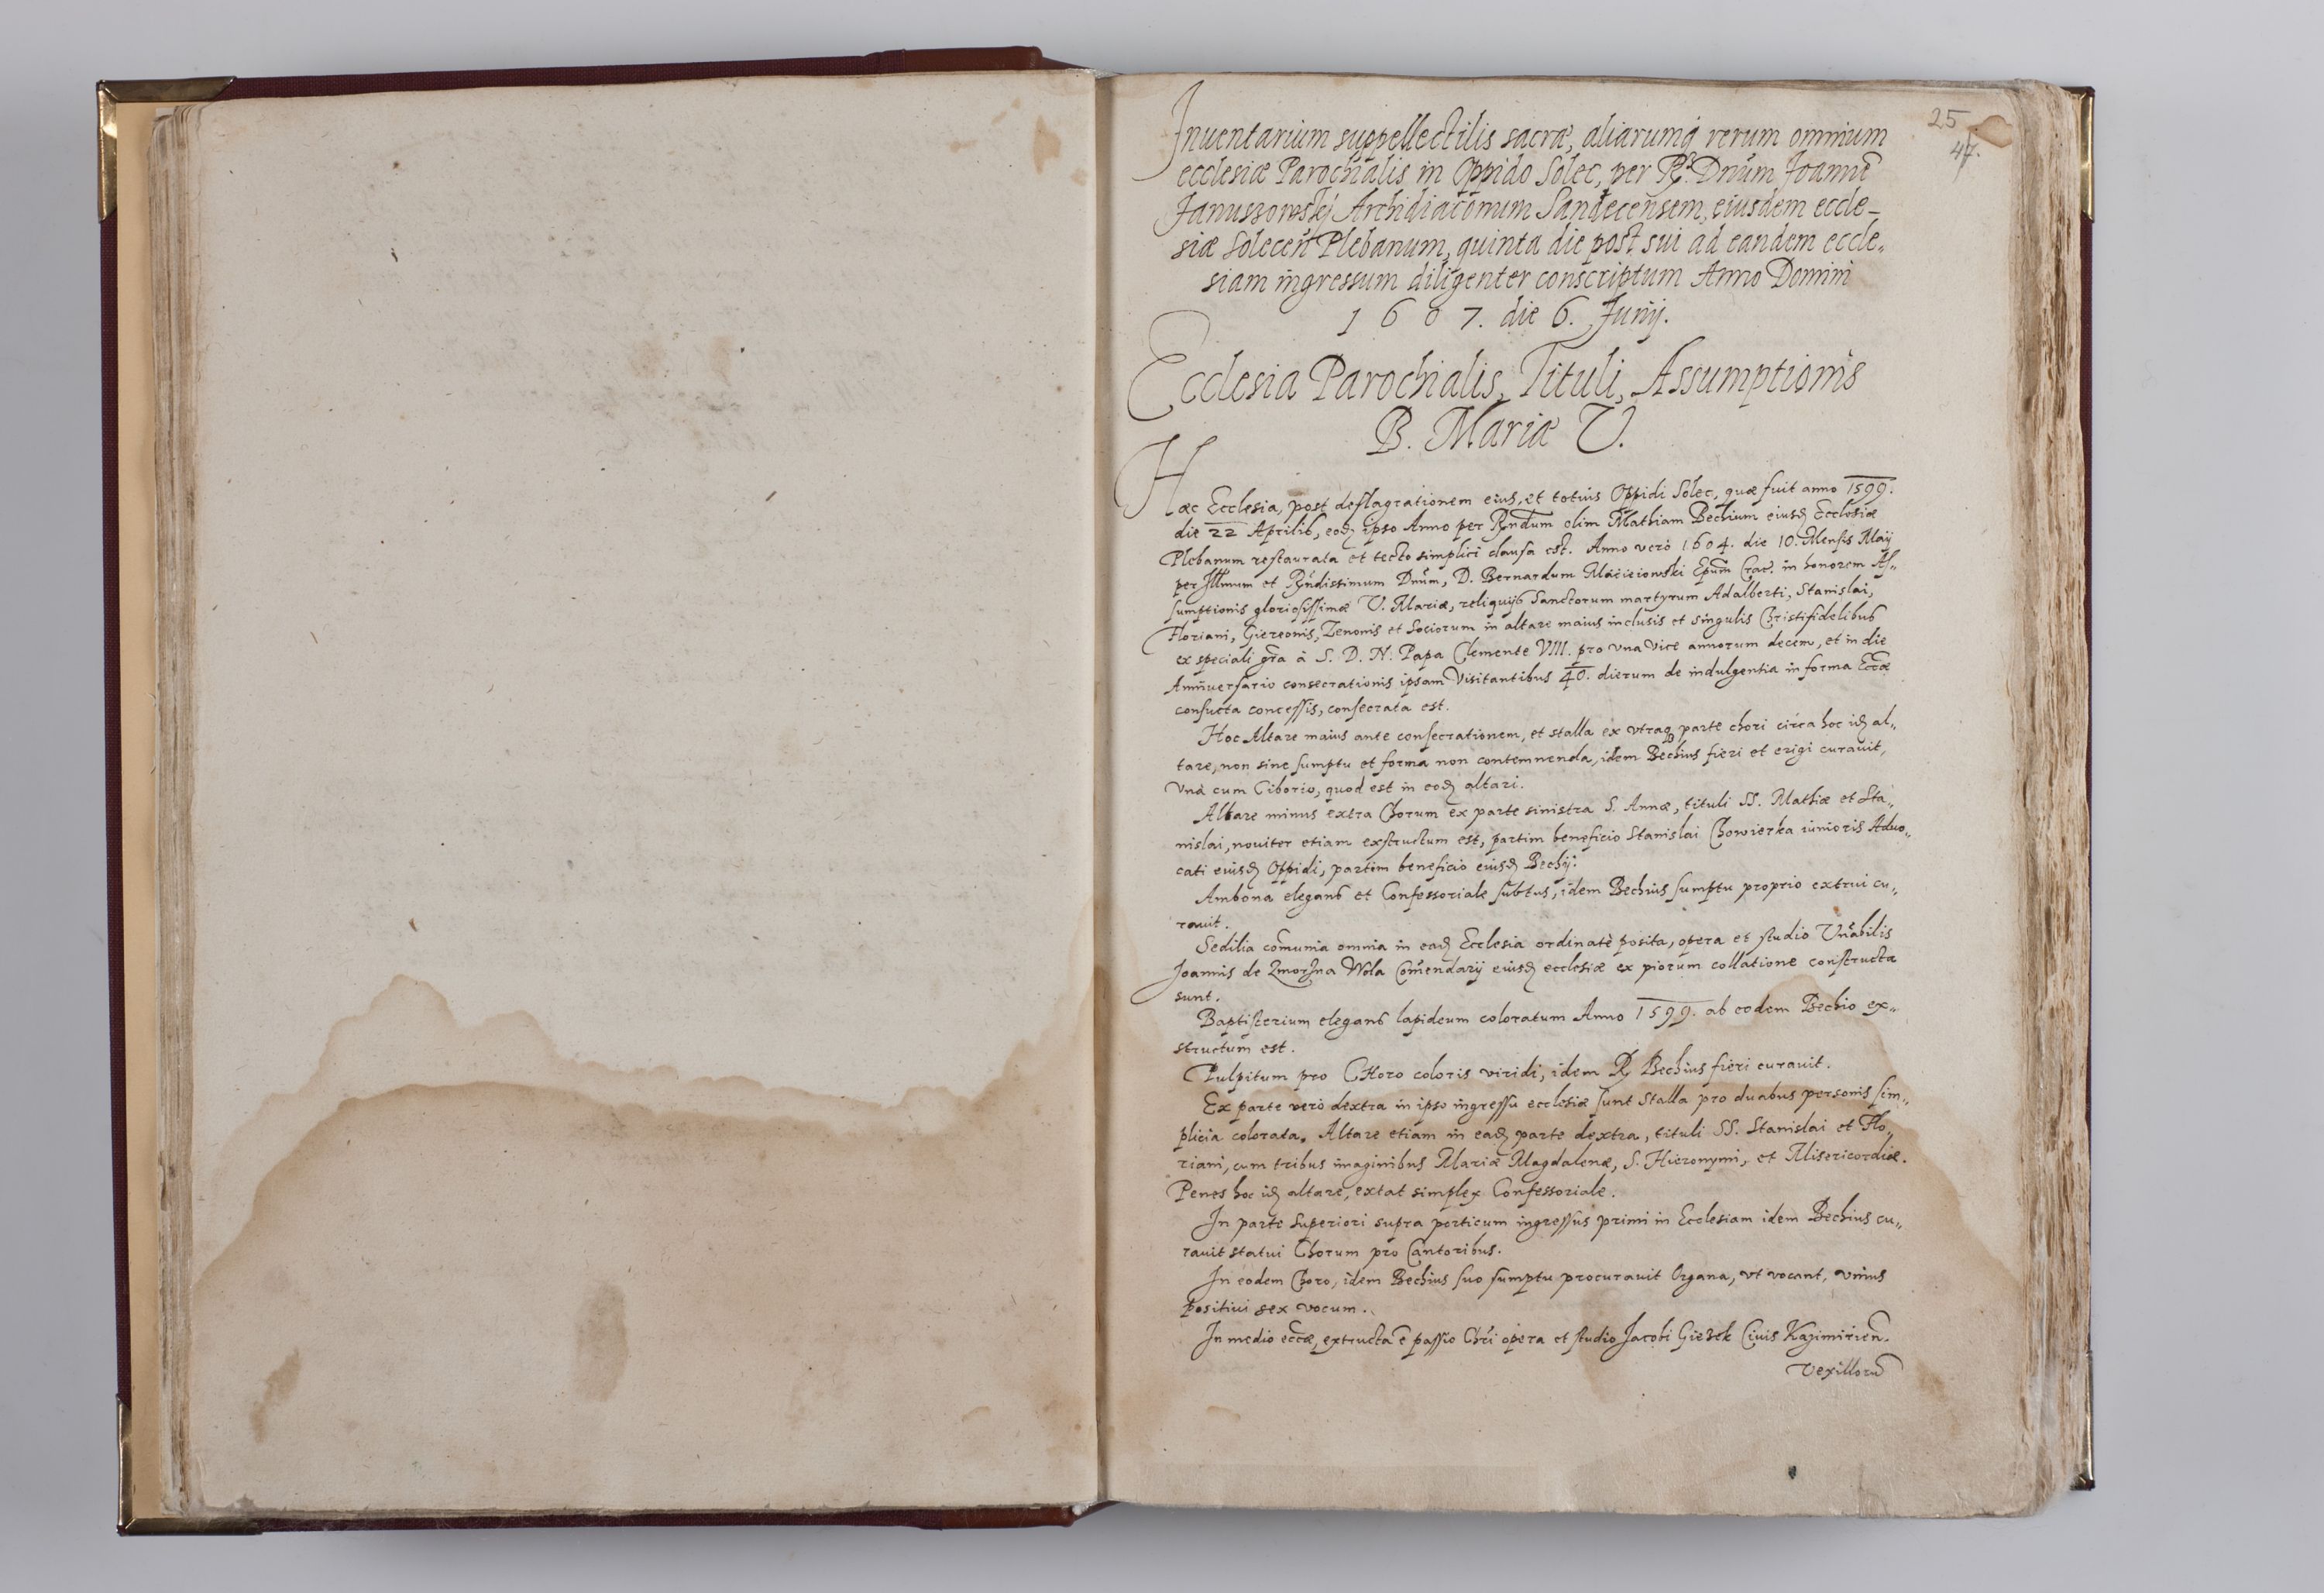 25
47.
Inuentarium suppellectilis sacræ, aliarumq́ rerum omnium
ecclesiæ Parochialis in Oppido Solec, per R. Dnūm Joannē
Januszowskj Archidiaconum Sandecensem, eiusdem eccle-
siæ Solecen̄ Plebanum, quinta die post sui ad eandem eccle„
siam ingressum diligenter conscriptum Anno Domini
1 6 0 7. die 6. Junij.
Ecclesia Parochialis, Tituli, Assumptionis
B. Mariæ V.
Hæc Ecclesia, post deflagrationem eius, et totius Oppidi Solec, quæ fuit anno 1599.
die 22 Aprilis, eod. ipso Anno per Rn̄dum olim Mathiam Bechium eiusd. Ecclesiæ
Plebanum restaurata et tecto simplici clausa est. Anno verò 1604. die 10. Mensis Maij
per Illmum et Rn̄dissimum Dnūm, D. Bernardum Macieiowski Ep̄um Crac̄. in honorem As„
sumptionis gloriosissimæ V. Mariæ, reliquijs Sanctorum martyrum Adalberti, Stanislai,
Floriani, Giereonis, Zenonis et Sociorum in altare maius inclusis et singulis Christifidelibus
ex speciali grā à S. D. N: Papa Clemente VIII. pro vna vice annorum decem, et in die
Anniuersario consecrationis ipsam Visitantibus 40. dierum de indulgentia in forma Eccæ
consueta concessis, consecrata est.
Hoc Altare maius ante consecrationem, et stalla ex vtraq. parte chori circa hoc id. al„
tare, non sine sumptu et forma non contemnenda, idem Bechius fieri et erigi curauit,
Vnà cum Ciborio, quod est in eod. altari.
Altare minus extra Chorum ex parte sinistra S. Annæ, tituli SS. Mathiæ et Sta„
nislai, nouiter etiam exstructum est, partim beneficio Stanislai Chowierka iunioris Aduo„
cati eiusd. Oppidi, partim beneficio eiusd. Bechij.
Ambona elegans et Confessoriale subtus, idem Bechius sumptu proprio extrui cu„
rauit.
Sedilia com̄unia omnia in ead. Ecclesia ordinatè posita, opera et studio Vnābilis
Joannis de Wola Com̄endarij eiusd. ecclesiæ ex piorum collatione constructa
sunt.
Baptisterium elegans lapideum coloratum Anno 1599. ab eodem Bechio ex„
structum est.
Pulpitum pro CHoro coloris viridi, idem R. Bechius fieri curauit.
Ex parte verò dextra in ipso ingressu ecclesiæ sunt Stalla pro duabus personis sim„
plicia colorata. Altare etiam in ead. parte dextra, tituli SS. Stanislai et Flo„
riani, cum tribus imaginibus Mariæ Magdalenæ, S. Hieronymi, et Misericordiæ.
Penes hoc id. altare, extat simplex Confessoriale.
In parte superiori supra porticum ingressus primi in Ecclesiam idem Bechius cu„
rauit statui Chorum pro Cantoribus.
In eodem Choro, idem Bechius suo sumptu procurauit Organa, vt vocant, vnius
positiui sex vocum.
In medio eccæ, extructa ē passio Chri opera et studio Jacobi Giezek Ciuis Kazimirien̄.
Vexillorū